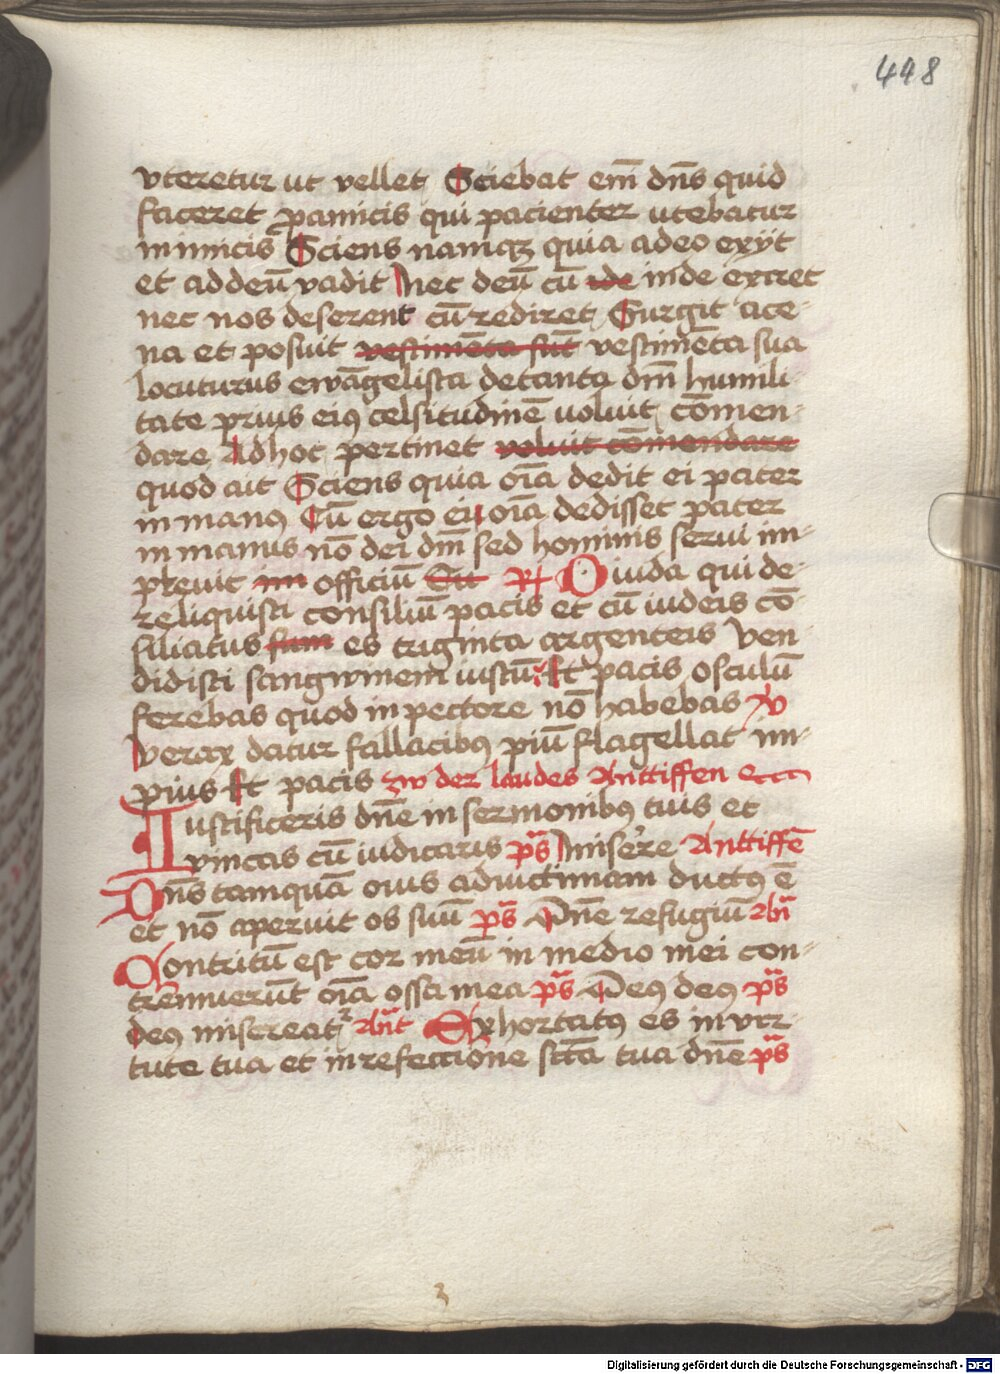 448
vteretur ut vellet Sciebat em̄ dn̄s quid
faceret p̱amicis qui pacienter utebatur
inimicis Sciens namqꝫ quia adeo exijt
et addeū vadit Nec deū cū ide inde exiret
nec nos deserent cū rediret Surgit ace-
na et posuit vestimēta sua
locuturus ewāgelista detanta dm̄ humili
tate prius eiꝯ celsitudinē uoluit cōmen-
dare Adhoc pertinet voluit cōmendare
quod ait Sciens quia oīa dedit ei pater
in manꝯ Cū ergo ei oīa dedisset pater
in manus nō dei dm̄ sed hominis serui im-
pleuit im officiū Cu R O iuda qui de-
reliquisti consiliū pacis et cū iudeis cō-
siliatus sum es triginta argenteis ven
didisti sangwinem iustū Et pacis osculū
ferebas quod in pectore nō habebas V
Verax datur fallacibꝯ piū flagellat im-
pius Et pacis zw der laudes Anttiffen
Iustificeris dn̄e in sermonibꝯ tuis et
vincas cū iudicaris ps̄ Miserꝛe Anttiffē
Dn̄s tamquā ouis aduictimam ductꝯ ē
et nō aperuit os suū ps̄ Dn̄e refugiū An̄
Contritū est cor meū in medio mei con-
tremuerūt oīa ossa mea ps̄ Deꝯ deꝯ ps̄
deꝯ misereatꝛ An̄t Exhortatꝯ es in vir-
tute tua et in refeccione sc̄tā tua dn̄e ps̄
3
Digitalisierung gefördert durch die Deutsche Forschungsgemeinschaft - DFG